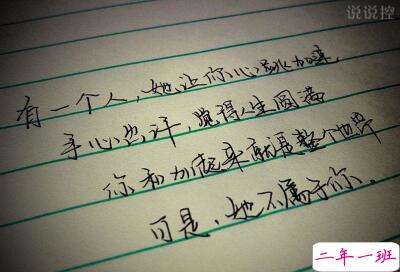 说说控
有一个人，她让你心跳加速，
手心出汗，觉得人生圆满
你和她加起来就是整个世界
可是，她不属于你．
二年一班